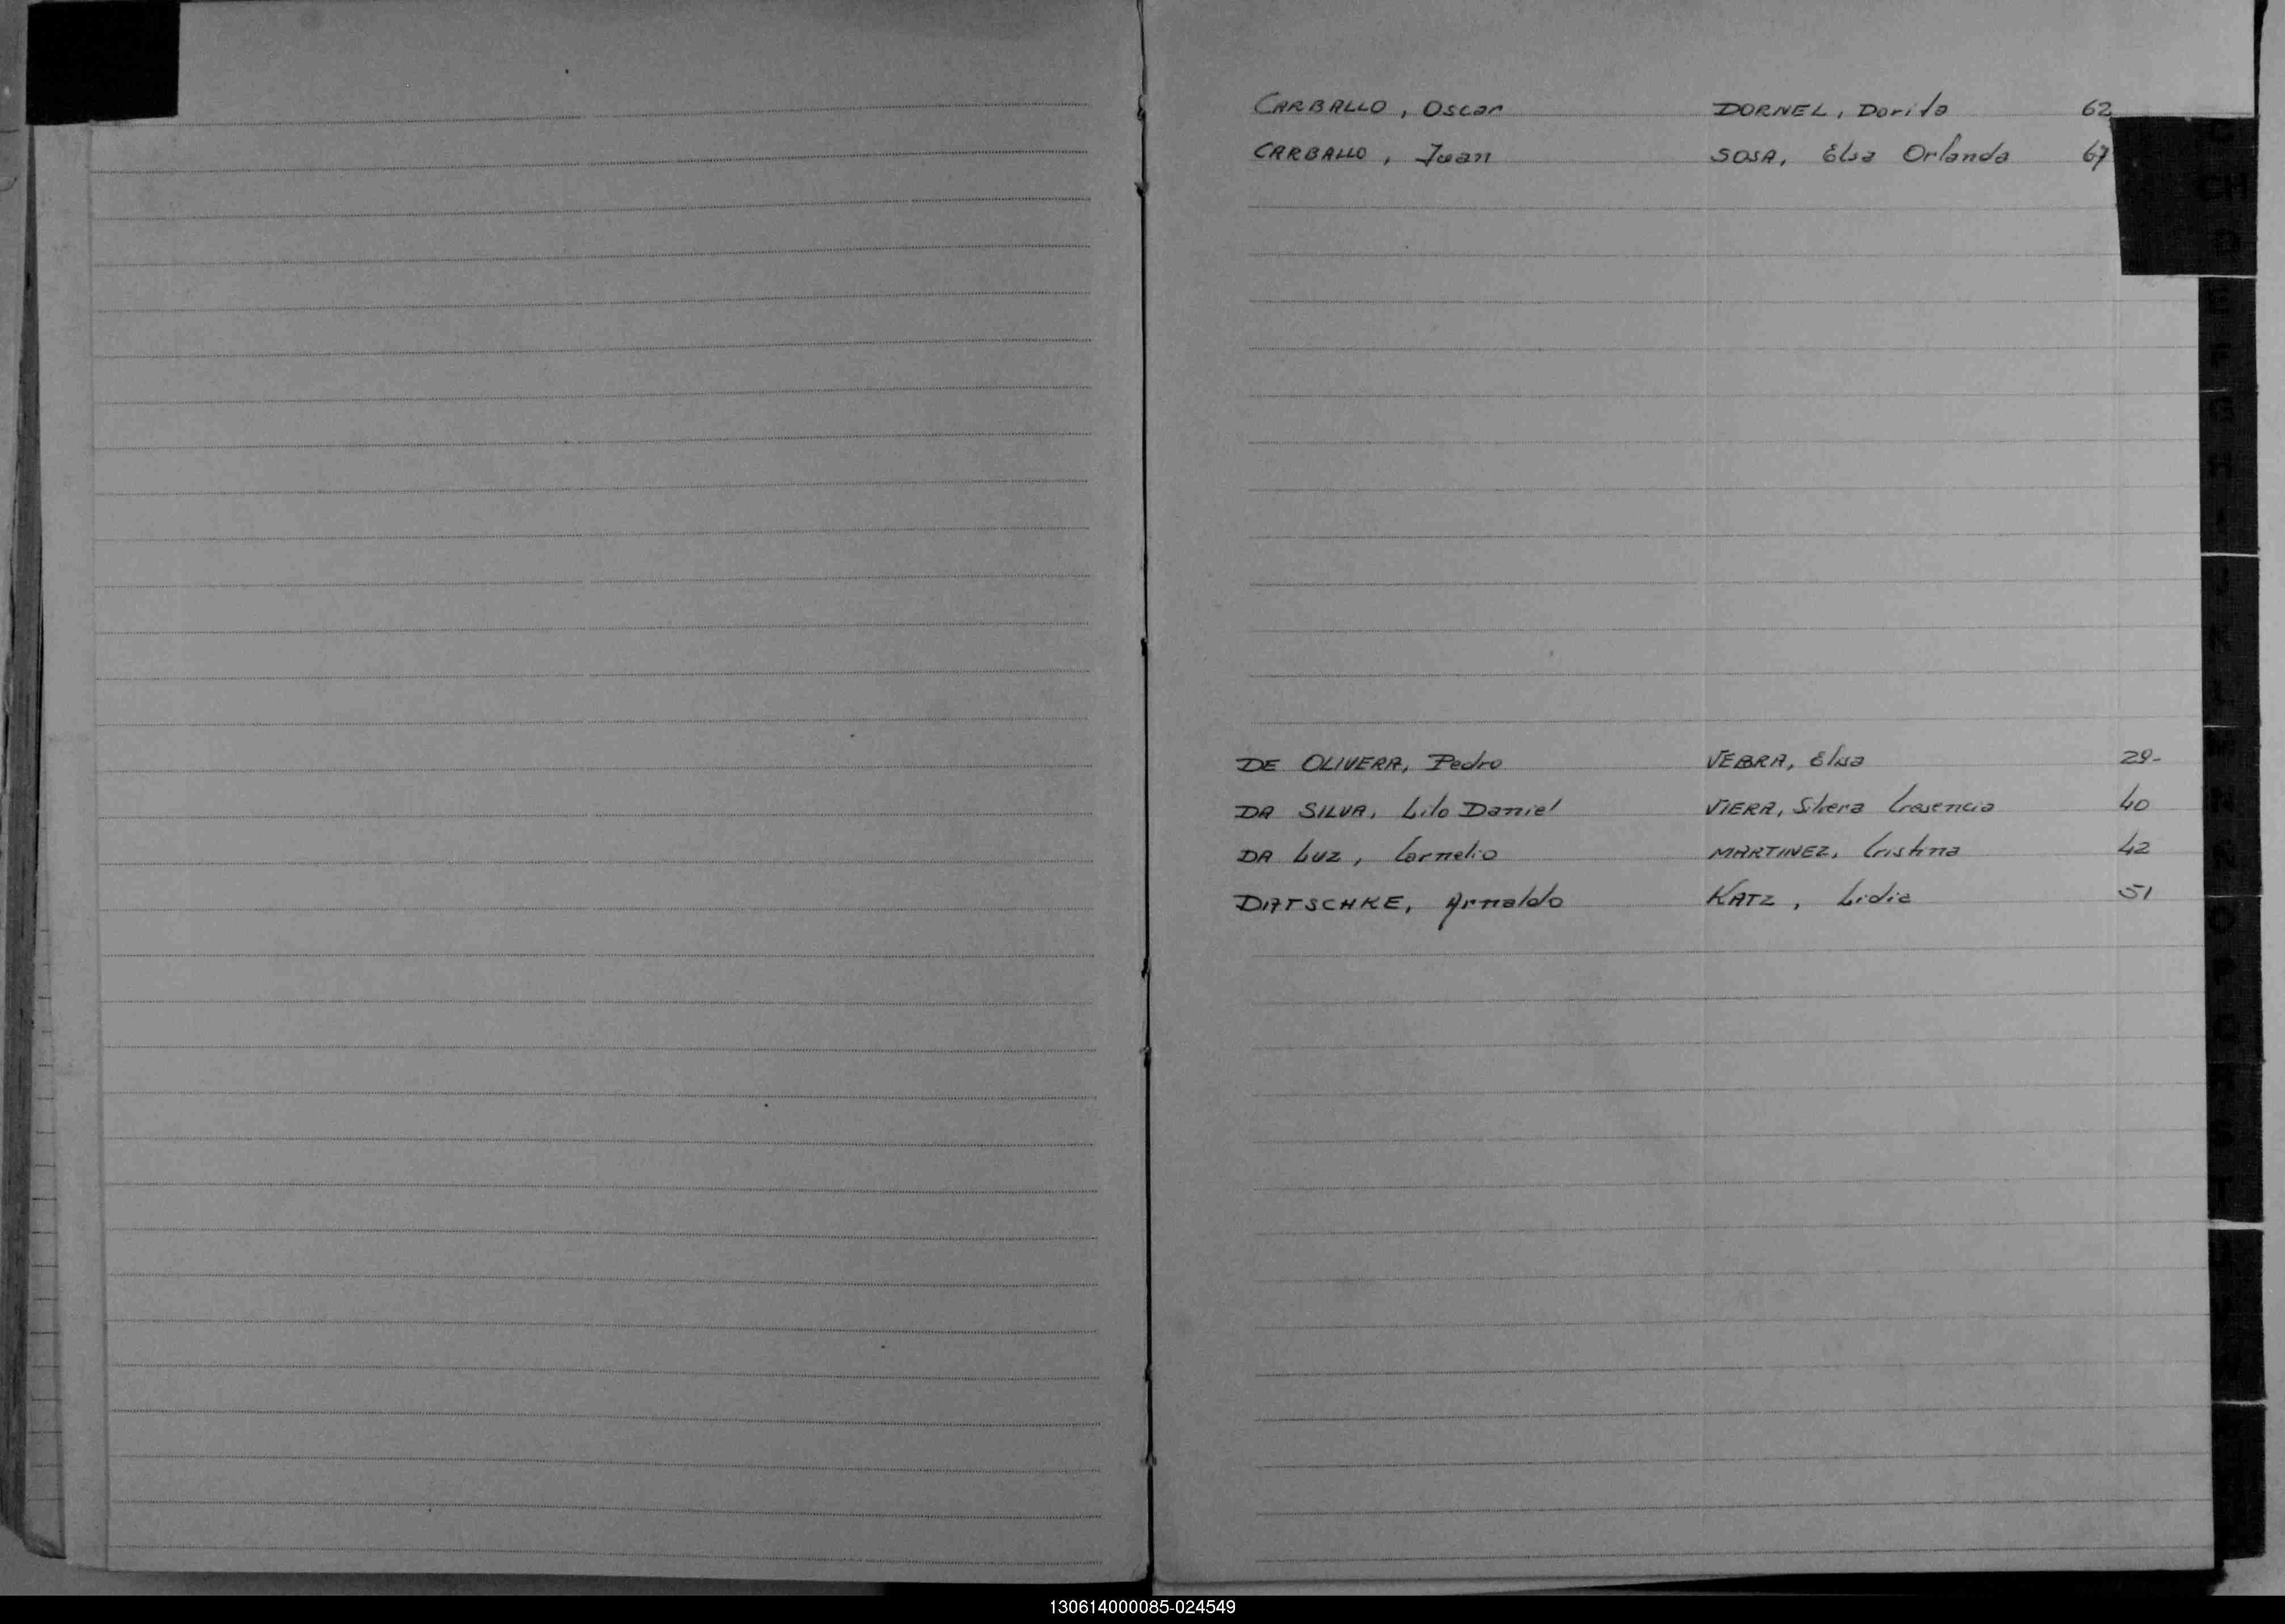 CARBALLO, Oscar DORNEL, Dorita 62
CARBALLO, Juan SOSA, Elsa Orlanda 67
DE OLIVERA, Pedro Elsa 29-
DA SILVA, Lilo Daniel VIERA, Silvera Cresencia 40
DA LUZ, Cornelio MARTINEZ, Cristina 42
DIATSCHKE, Arnaldo KATZ, Lidia 51
130614000085-024549